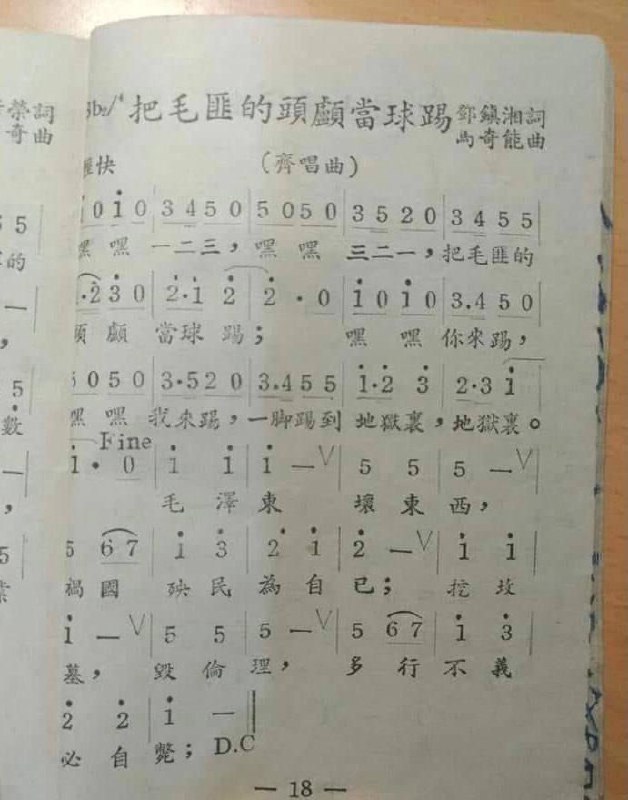 榮詞
奇曲
把毛匪的頭顱當球踢 鄧鎮湘詞
馬奇能曲
快 (齊唱曲)
0 1 0 | 3 4 5 0 | 5 0 5 0 | 3 5 2 0 | 3 4 5 5 |
嘿 嘿 一二三，嘿 嘿 三二一，把毛匪的
·2 3 0 | 2·1 2 | 2 · 0 | 1 0 1 0 | 3.4 5 0 |
顱 當球 踢； 嘿 嘿 你來踢，
5 0 5 0 | 3·5 2 0 | 3.4 5 5 | 1·2 3 | 2·3 1 |
嘿 嘿 我來踢，一脚踢到 地獄裏，地獄裏。
Fine
1 · 0 | 1 1 | 1 — V | 5 5 | 5 — V |
毛 澤 東 壞 東 西，
5 6 7 | 1 3 | 2 1 | 2 — V | 1 1 |
禍 國 殃 民 為 自 己； 挖 坟
1 — V | 5 5 | 5 — V | 5 6 7 | 1 3 |
墓， 毀 倫 理， 多 行 不 義
2 2 | 1 — ‖
必 自 斃；D.C
— 18 —